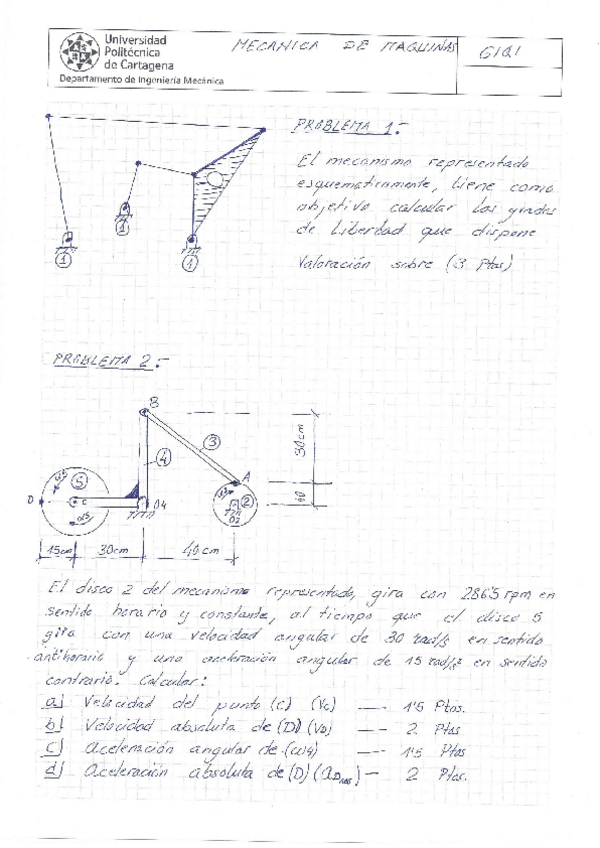 Universidad
Politécnica
de Cartagena
Departamento de Ingeniería Mecánica
MECANICA DE MAQUINAS
GIQI
PROBLEMA 1:-
El mecanismo representado
esquematicamente, tiene como
objetivo calcular los grados
de libertad que dispone
Valoración sobre (3 Ptos)
1
1
1
PROBLEMA 2:-
B
3
4
A
5
C
D
O4
2
O2
30cm
10
15cm
30cm
40cm
El disco 2 del mecanismo representado, gira con 286'5 rpm en
sentido horario y constante, al tiempo que el disco 5
gira con una velocidad angular de 30 rad/s en sentido
antihorario y una aceleración angular de 15 rad/s² en sentido
contrario. Calcular:
a) Velocidad del punto (C) (Vc) — 1'5 Ptos.
b) Velocidad absoluta de (D) (VD) — 2 Ptos
c) Aceleración angular de (ω4) — 1'5 Ptos
d) Aceleración absoluta de (D) (aDABS) — 2 Ptos.